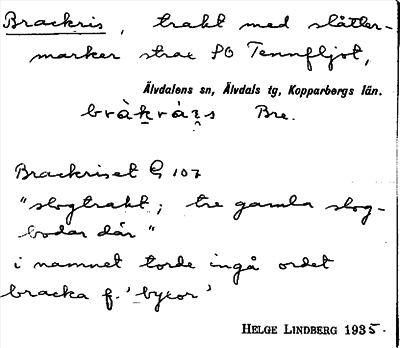 Brackris, trakt med slåtter-
marker strax SO Tennfljot,
Älvdalens sn, Älvdals tg, Kopparbergs län.
Bre.
Brackriset G 107
"slogtrakt; tre gamla slog-
bodar där"
i namnet torde ingå ordet
bracka f.
HELGE LINDBERG 1935.